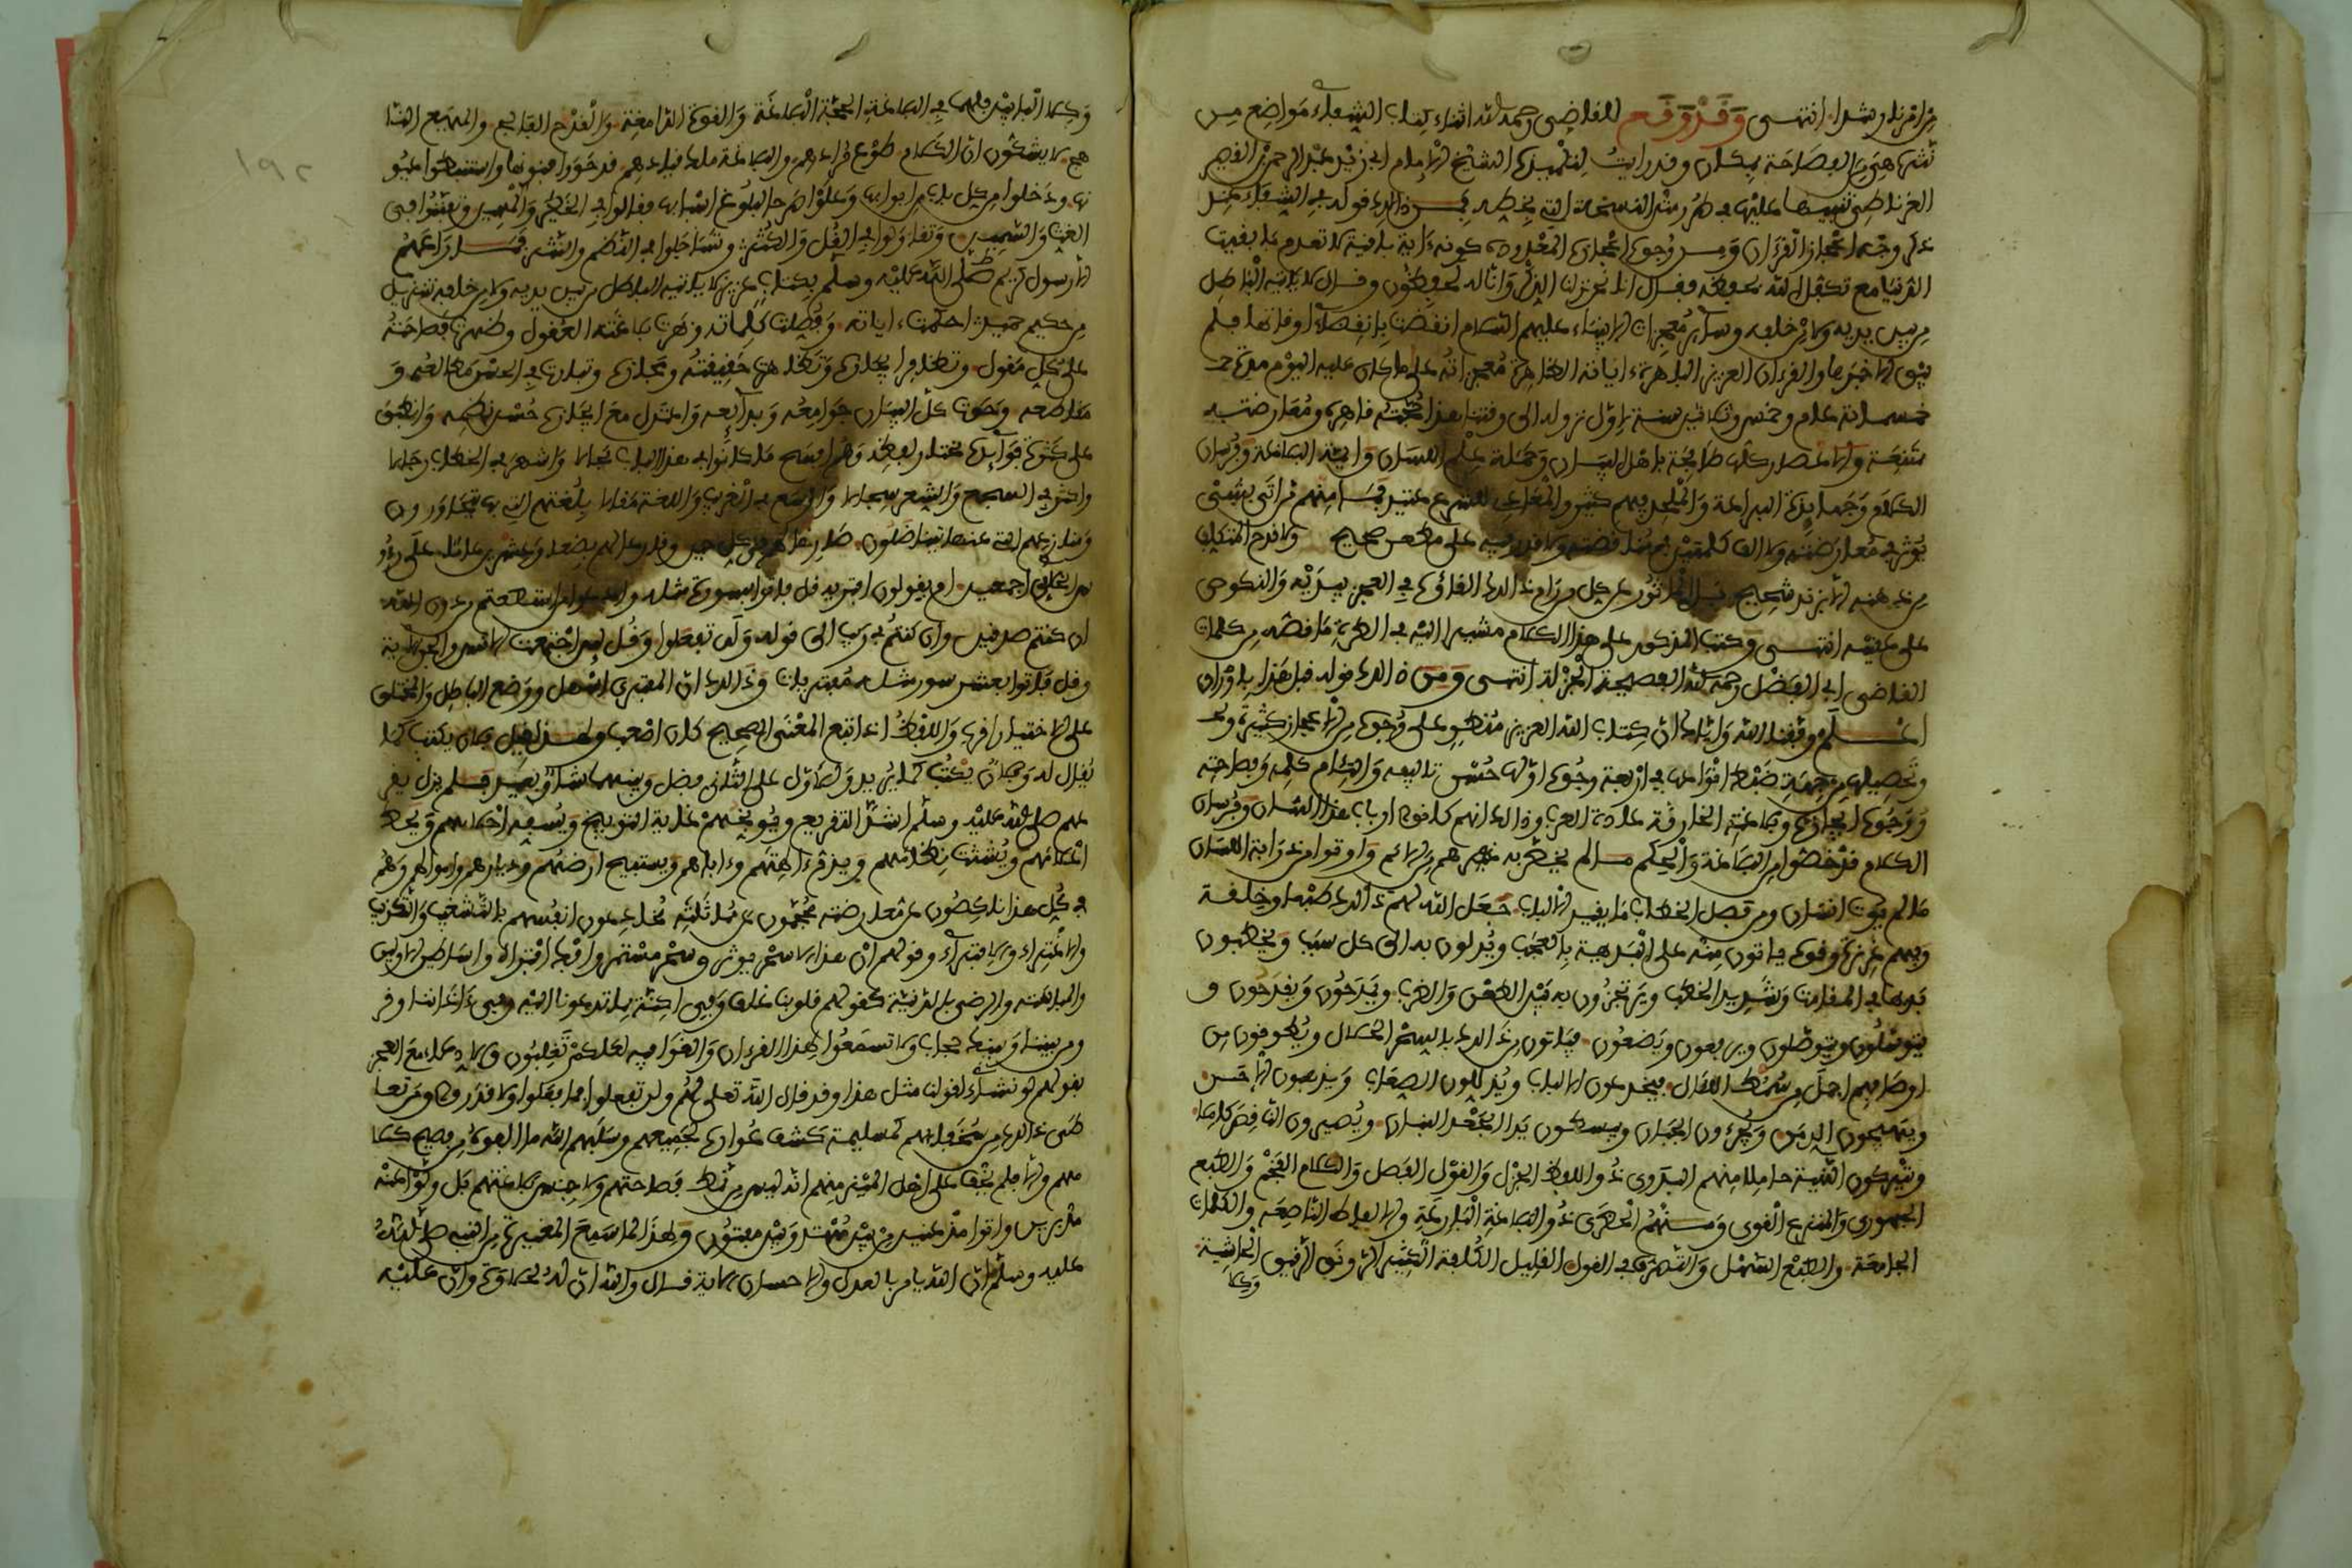 من امرنا رشدا انتهى وقد وقع للقاضي رحمه الله اثناء كتاب الشفاء مواضع من
نثره هي من الفصاحة بمكان وقد رايت لتلميذه الشيخ الامام ابي زيد عبد الرحمن بن القصير
الغرناطي تنبيها عليها في طرر من النسخة التي بخطه فمن ذلك قوله في الشفاء عند
ذكر وجه اعجاز القرءان ومن وجوه اعجازه المعدودة كونه ءاية باقية لا تعدم ما بقيت
الدنيا مع تكفل الله بحفظه فقال انا نحن نزلنا الذكر وانا له لحافظون وقال لا ياتيه الباطل
من بين يديه ولا من خلفه وسائر معجزات الانبياء عليهم السلام انقضت بانقضاء اوقاتها فلم
يبق الا خبرها والقرءان العزيز الباهرة ءاياته الظاهرة معجزاته على ما كان عليه اليوم مدة
خمسمائة عام وخمس وثلاثين سنة لاول نزوله الى وقتنا هذا حجته قاهرة ومعارضته
ممتنعة والاعصار كلها طافحة باهل البيان وحملة علم اللسان وايمة البلاغة وفرسان
الكلام وجهابذة البراعة والملحد فيهم كثير والمعادي للشرع عتيد فما منهم من اتى بشيء
يوثر في معارضته ولا الف كلمتين في مناقضته ولا قدر فيه على مطعن صحيح ولا قدح المتكلف
من ذهنه الا بزند شحيح بل الماثور عن كل من رام ذلك القاؤه في العجز بيديه والنكوص
على عقبيه انتهى وكتب المذكور على هذا الكلام مشيرا اليه في الطرة ما نصه من كلمات
القاضي ابي الفضل رحمه الله الفصيحة الجزلة انتهى ومن ذلك قوله قبل هذا باوراق
اعلم وفقنا الله واياك ان كتاب الله العزيز منطو على وجوه من الاعجاز كثيرة
وتحصيلها من جهة ضبط انواعها في اربعة وجوه اولها حسن تاليفه والتئام كلمه وفصاحته
ووجوه ايجازه وبلاغته الخارقة عادة العرب وذلك انهم كانوا ارباب هذا الشان وفرسان
الكلام قد خصوا من البلاغة والحكم ما لم يخص به غيرهم من الامم واوتوا من ذرابة اللسان
ما لم يوت انسان ومن فصل الخطاب ما يقيد الالباب جعل الله لهم ذلك طبعا وخلقة
وفيهم غريزة وقوة ياتون منه على البديهة بالعجب ويدلون به الى كل سبب ويخطبون
بديها في المقامات وشديد الخطب ويرتجزون به بين الطعن والضرب ويمدحون ويقدحون و
يتوسلون ويتوصلون ويرفعون ويضعون فياتون من ذلك بالسحر الحلال ويطوقون من
اوصافهم اجمل من سمط اللئال فيخدعون الالباب ويذللون الصعاب ويذهبون الاحن
ويهيجون الدمن ويجرءون الجبان ويبسطون يد الجعد البنان ويصيرون الناقص كاملا
ويتركون النبيه خاملا منهم البدوي ذو اللفظ الجزل والقول الفصل والكلام الفخم والطبع
الجهوري والمنزع القوي ومنهم الحضري ذو البلاغة البارعة والالفاظ الناصعة والكلمات
الجامعة والطبع السهل والتصرف في القول القليل الكلفة الكثير الرونق الرقيق الحاشية
وكلا
وكلا البابين فلهما في البلاغة الحجة البالغة والقوة الدامغة والقدح الفالج والمهيع النا
هج لا يشكون ان الكلام طوع مرادهم والبلاغة ملك قيادهم قد حووا فنونها واستنبطوا عيو
نها ودخلوا من كل باب من ابوابها وعلوا صرحا لبلوغ اسبابها فقالوا في الخطير والمهين وتفننوا في
الغث والسمين وتقاولوا في القل والكثر وتساجلوا في النظم والنثر فما راعهم
الا رسول كريم صلى الله عليه وسلم بكتاب عزيز لا ياتيه الباطل من بين يديه ولا من خلفه تنزيل
من حكيم حميد احكمت ءاياته وفصلت كلماته وبهرت بلاغته العقول وظهرت فصاحته
على كل مقول وتظافر ايجازه وتظاهرت حقيقته ومجازه وتبارت في الحسن مطالعه و
مقاطعه وحوت كل البيان جوامعه وبدائعه واعتدل مع ايجازه حسن نظمه وانطبق
على كثرة فوائده مختار لفظه وهم افسح ما كانوا في هذا الباب مجالا واشهر في الخطابة رجالا
واكثر في السجع والشعر سجالا واوسع في الغريب واللغة مقالا بلغتهم التي بها يتحاورون
ومنازعهم التي عنها يتناضلون صارخا بهم في كل حين ومقرعا لهم بضعا وعشرين عاما على رءو
س الملإ اجمعين ام يقولون افتريه قل فاتوا بسورة مثله وادعوا من استطعتم من دون الله
ان كنتم صدقين وان كنتم في ريب الى قوله ولن تفعلوا وقل لئن اجتمعت الانس والجن الاية
وقل فاتوا بعشر سور مثله مفتريات وذلك ان المفترى اسهل ووضع الباطل والمختلق
على الاختيار اقرب واللفظ اذا تبع المعنى الصحيح كان اصعب ولهذا قيل فلان يكتب كما
يقال له وفلان يكتب كما يريد وللاول على الثاني فضل وبينهما شاو بعيد فلم يزل يقر
عهم صلى الله عليه وسلم اشد التقريع ويوبخهم غاية التوبيخ ويسفه احلامهم ويحط
اعلامهم ويشتت نظامهم ويذم ءالهتهم وءاباءهم ويستبيح ارضهم وديارهم واموالهم وهم
في كل هذا ناكصون عن معارضته محجمون عن مماثلته يخادعون انفسهم بالتشغيب والتكذيب
والاغتراء والافتراء وقولهم ان هذا الا سحر يوثر وسحر مستمر وافك افتراه واساطير الاولين
والمباهتة والرضى بالدنيئة كقولهم قلوبنا غلف وفي اكنة مما تدعونا اليه وفي ءاذاننا وقر
ومن بيننا وبينك حجاب ولا تسمعوا لهذا القرءان والغوا فيه لعلكم تغلبون والادعاء مع العجز
بقولهم لو نشاء لقلنا مثل هذا وقد قال الله تعلى لهم ولن تفعلوا فما فعلوا ولا قدروا ومن تعا
طى ذلك من سخفائهم كمسيلمة كشف عواره لجميعهم وسلبهم الله ما الفوه من فصيح كلا
مهم والا فلم يخف على اهل الميز منهم انه ليس من نمط فصاحتهم ولا جنس بلاغتهم بل ولوا عنه
مدبرين واتوا مذعنين من بين مهتد وبين مفتون ولهذا لما سمع الوليد بن المغيرة من النبي صلى الله
عليه وسلم ان الله يامر بالعدل والاحسان الاية قال والله ان له لحلاوة وان عليه